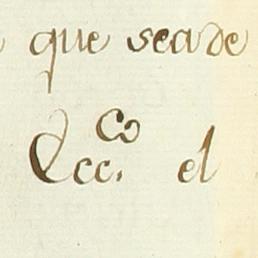 que sea de
Ecc.co el